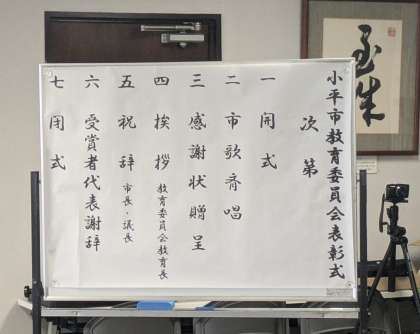 小平市教育委員会表彰式
次第
一 開式
二 市歌斉唱
三 感謝状贈呈
四 挨拶 教育委員会教育長
五 祝辞 市長・議長
六 受賞者代表謝辞
七 閉式